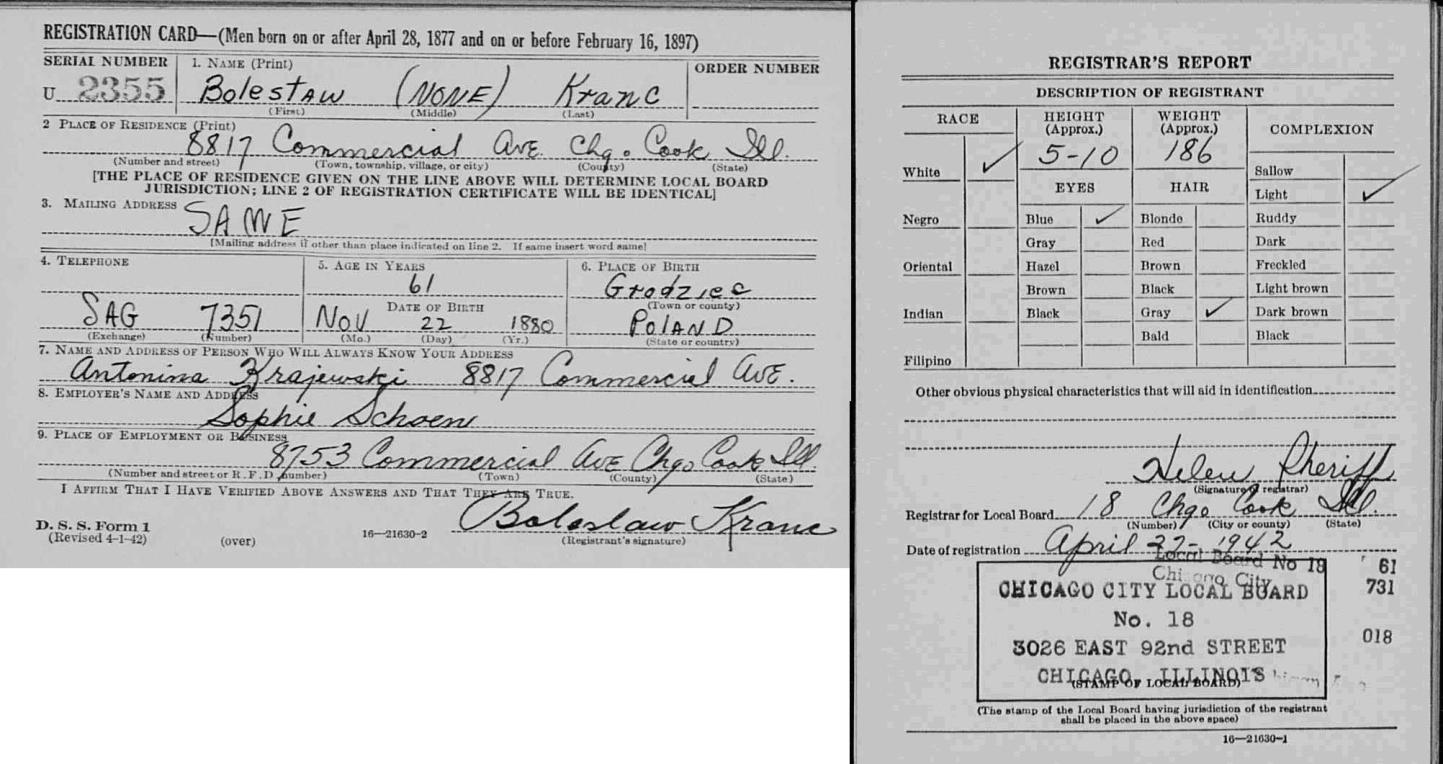 REGISTRATION CARD—(Men born on or after April 28, 1877 and on or before February 16, 1897)
SERIAL NUMBER 1. NAME (Print) ORDER NUMBER
U 2355 Bolestaw (NONE) Kranc
(First) (Middle) (Last)
2 PLACE OF RESIDENCE (Print)
8817 Commercial Ave. Chgo Cook Ill.
(Number and street) (Town, township, village, or city) (County) (State)
[THE PLACE OF RESIDENCE GIVEN ON THE LINE ABOVE WILL DETERMINE LOCAL BOARD
JURISDICTION; LINE 2 OF REGISTRATION CERTIFICATE WILL BE IDENTICAL]
3. MAILING ADDRESS
SAME
[Mailing address if other than place indicated on line 2. If same insert word same]
4. TELEPHONE 5. AGE IN YEARS 6. PLACE OF BIRTH
61 Grodziec
DATE OF BIRTH (Town or county)
SAG 7351 Nov 22 1880 POLAND
(Exchange) (Number) (Mo.) (Day) (Yr.) (State or country)
7. NAME AND ADDRESS OF PERSON WHO WILL ALWAYS KNOW YOUR ADDRESS
Antonina Krajewski 8817 Commercial Ave.
8. EMPLOYER'S NAME AND ADDRESS
Sophie Schoen
9. PLACE OF EMPLOYMENT OR BUSINESS
8753 Commercial Ave Chgo Cook Ill.
(Number and street or R. F. D. number) (Town) (County) (State)
I AFFIRM THAT I HAVE VERIFIED ABOVE ANSWERS AND THAT THEY ARE TRUE.
Boleslaw Kranc
D. S. S. Form 1
(Revised 4-1-42) (over) 16—21630-2 (Registrant's signature)
REGISTRAR'S REPORT
DESCRIPTION OF REGISTRANT
RACE HEIGHT (Approx.) WEIGHT (Approx.) COMPLEXION
5-10 186
White Sallow
EYES HAIR Light
Negro Blue Blonde Ruddy
Gray Red Dark
Oriental Hazel Brown Freckled
Brown Black Light brown
Indian Black Gray Dark brown
Bald Black
Filipino
Other obvious physical characteristics that will aid in identification
Helen Sheriff
(Signature of registrar)
Registrar for Local Board 18 Chgo Cook Ill.
(Number) (City or county) (State)
Date of registration April 27- 1942
Local Board No 18 61
Chicago City
CHICAGO CITY LOCAL BOARD 731
No. 18
3026 EAST 92nd STREET 018
CHICAGO, ILLINOIS
(STAMP OF LOCAL BOARD)
(The stamp of the Local Board having jurisdiction of the registrant
shall be placed in the above space)
16—21630-1